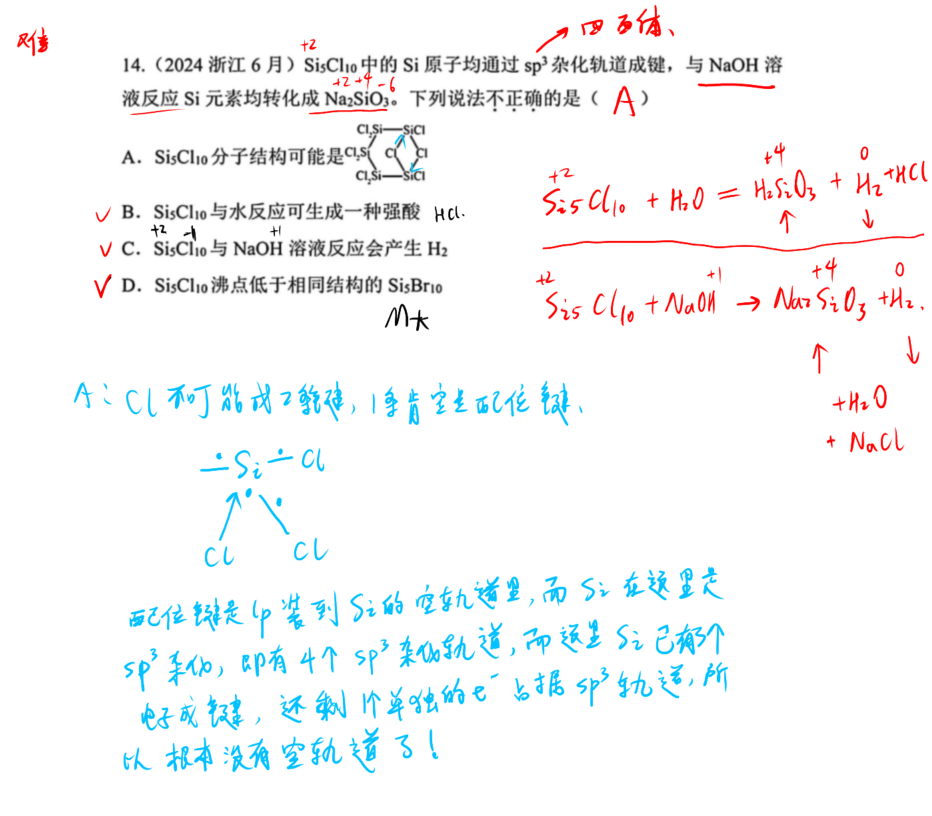 → 四面体、
+2
14.（2024 浙江 6 月）Si₅Cl₁₀中的 Si 原子均通过 sp³ 杂化轨道成键，与 NaOH 溶
+2 +4 -6
液反应 Si 元素均转化成 Na₂SiO₃。下列说法不正确的是（ A ）
A．Si₅Cl₁₀分子结构可能是
Cl₂Si—SiCl
Cl₂Si Cl Cl
Cl₂Si—SiCl
✓ B．Si₅Cl₁₀与水反应可生成一种强酸 HCl.
+2 -1 +1
✓ C．Si₅Cl₁₀与 NaOH 溶液反应会产生 H₂
✓ D．Si₅Cl₁₀沸点低于相同结构的 Si₅Br₁₀
M大
+2 +4 0
Si₅Cl₁₀ + H₂O = H₂SiO₃ + H₂ + HCl
↑ ↓
+2 +1 +4 0
Si₅Cl₁₀ + NaOH → Na₂SiO₃ + H₂.
↑ ↓
+H₂O
+ NaCl
A：Cl 不可能成2条键，1条肯定是配位键、
Si Cl
Cl Cl
配位键是 lp 装到 Si 的空轨道里，而 Si 在这里是
sp³ 杂化，即有 4个 sp³ 杂化轨道，而这里 Si 已有3个
电子成键，还剩1个单独的 e⁻ 占据 sp³ 轨道，所
以 根本没有空轨道了！